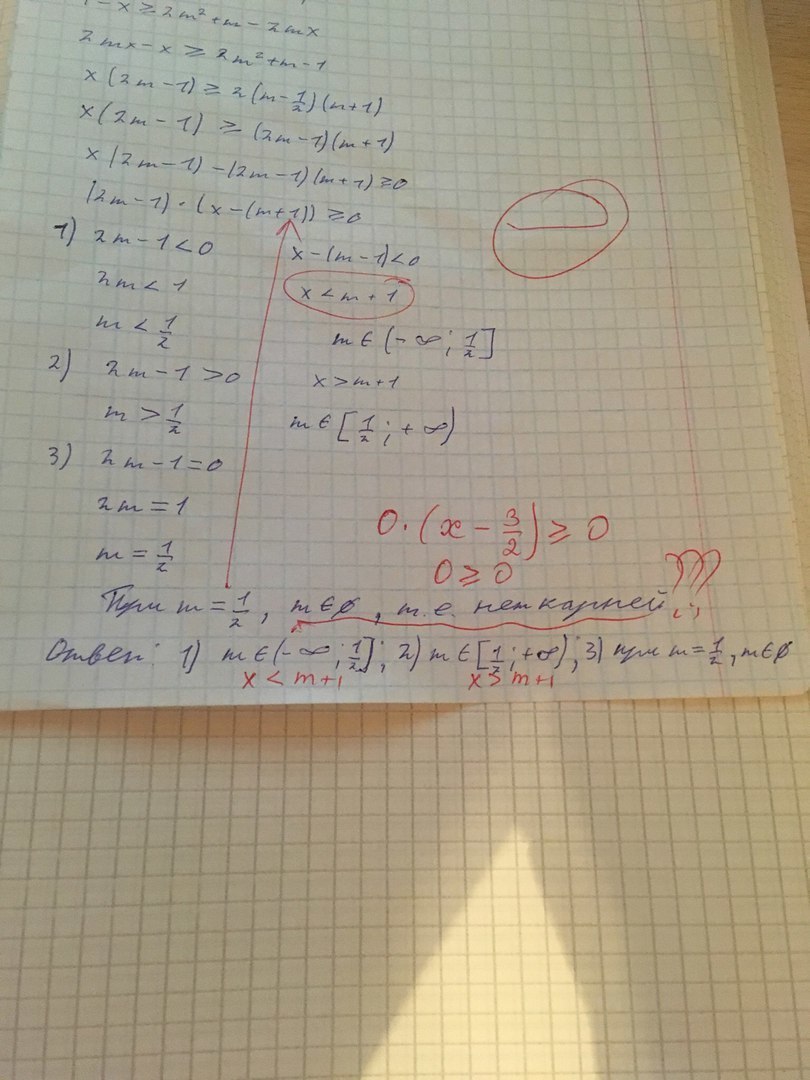 1 - x ≥ 2m² + m - 2mx
2mx - x ≥ 2m² + m - 1
x(2m - 1) ≥ 2(m - 1/2)(m + 1)
x(2m - 1) ≥ (2m - 1)(m + 1)
x(2m - 1) - (2m - 1)(m + 1) ≥ 0
(2m - 1) · (x - (m + 1)) ≥ 0
1) 2m - 1 < 0 x - (m - 1) < 0
2m < 1 x < m + 1
m < 1/2 m ∈ (-∞; 1/2]
2) 2m - 1 > 0 x > m + 1
m > 1/2 m ∈ [1/2; +∞)
3) 2m - 1 = 0
2m = 1
0 · (x - 3/2) ≥ 0
m = 1/2
0 ≥ 0
При m = 1/2, m ∈ ∅, т.е. нет карней
Ответ: 1) m ∈ (-∞; 1/2]; 2) m ∈ [1/2; +∞); 3) при m = 1/2, m ∈ ∅
x < m + 1 x > m + 1